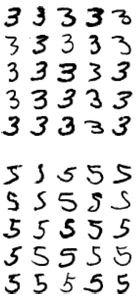 3 3 3 3 3
3 3 3 3 3
3 3 3 3 3
3 3 3 3 3
3 3 3 3 3
5 5 5 5 5
5 5 5 5 5
5 5 5 5 5
5 5 5 5 5
5 5 5 5 5